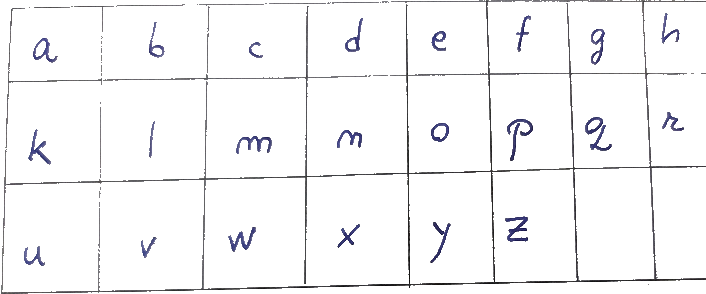 a b c d e f g h
k l m n o p q r
u v w x y z